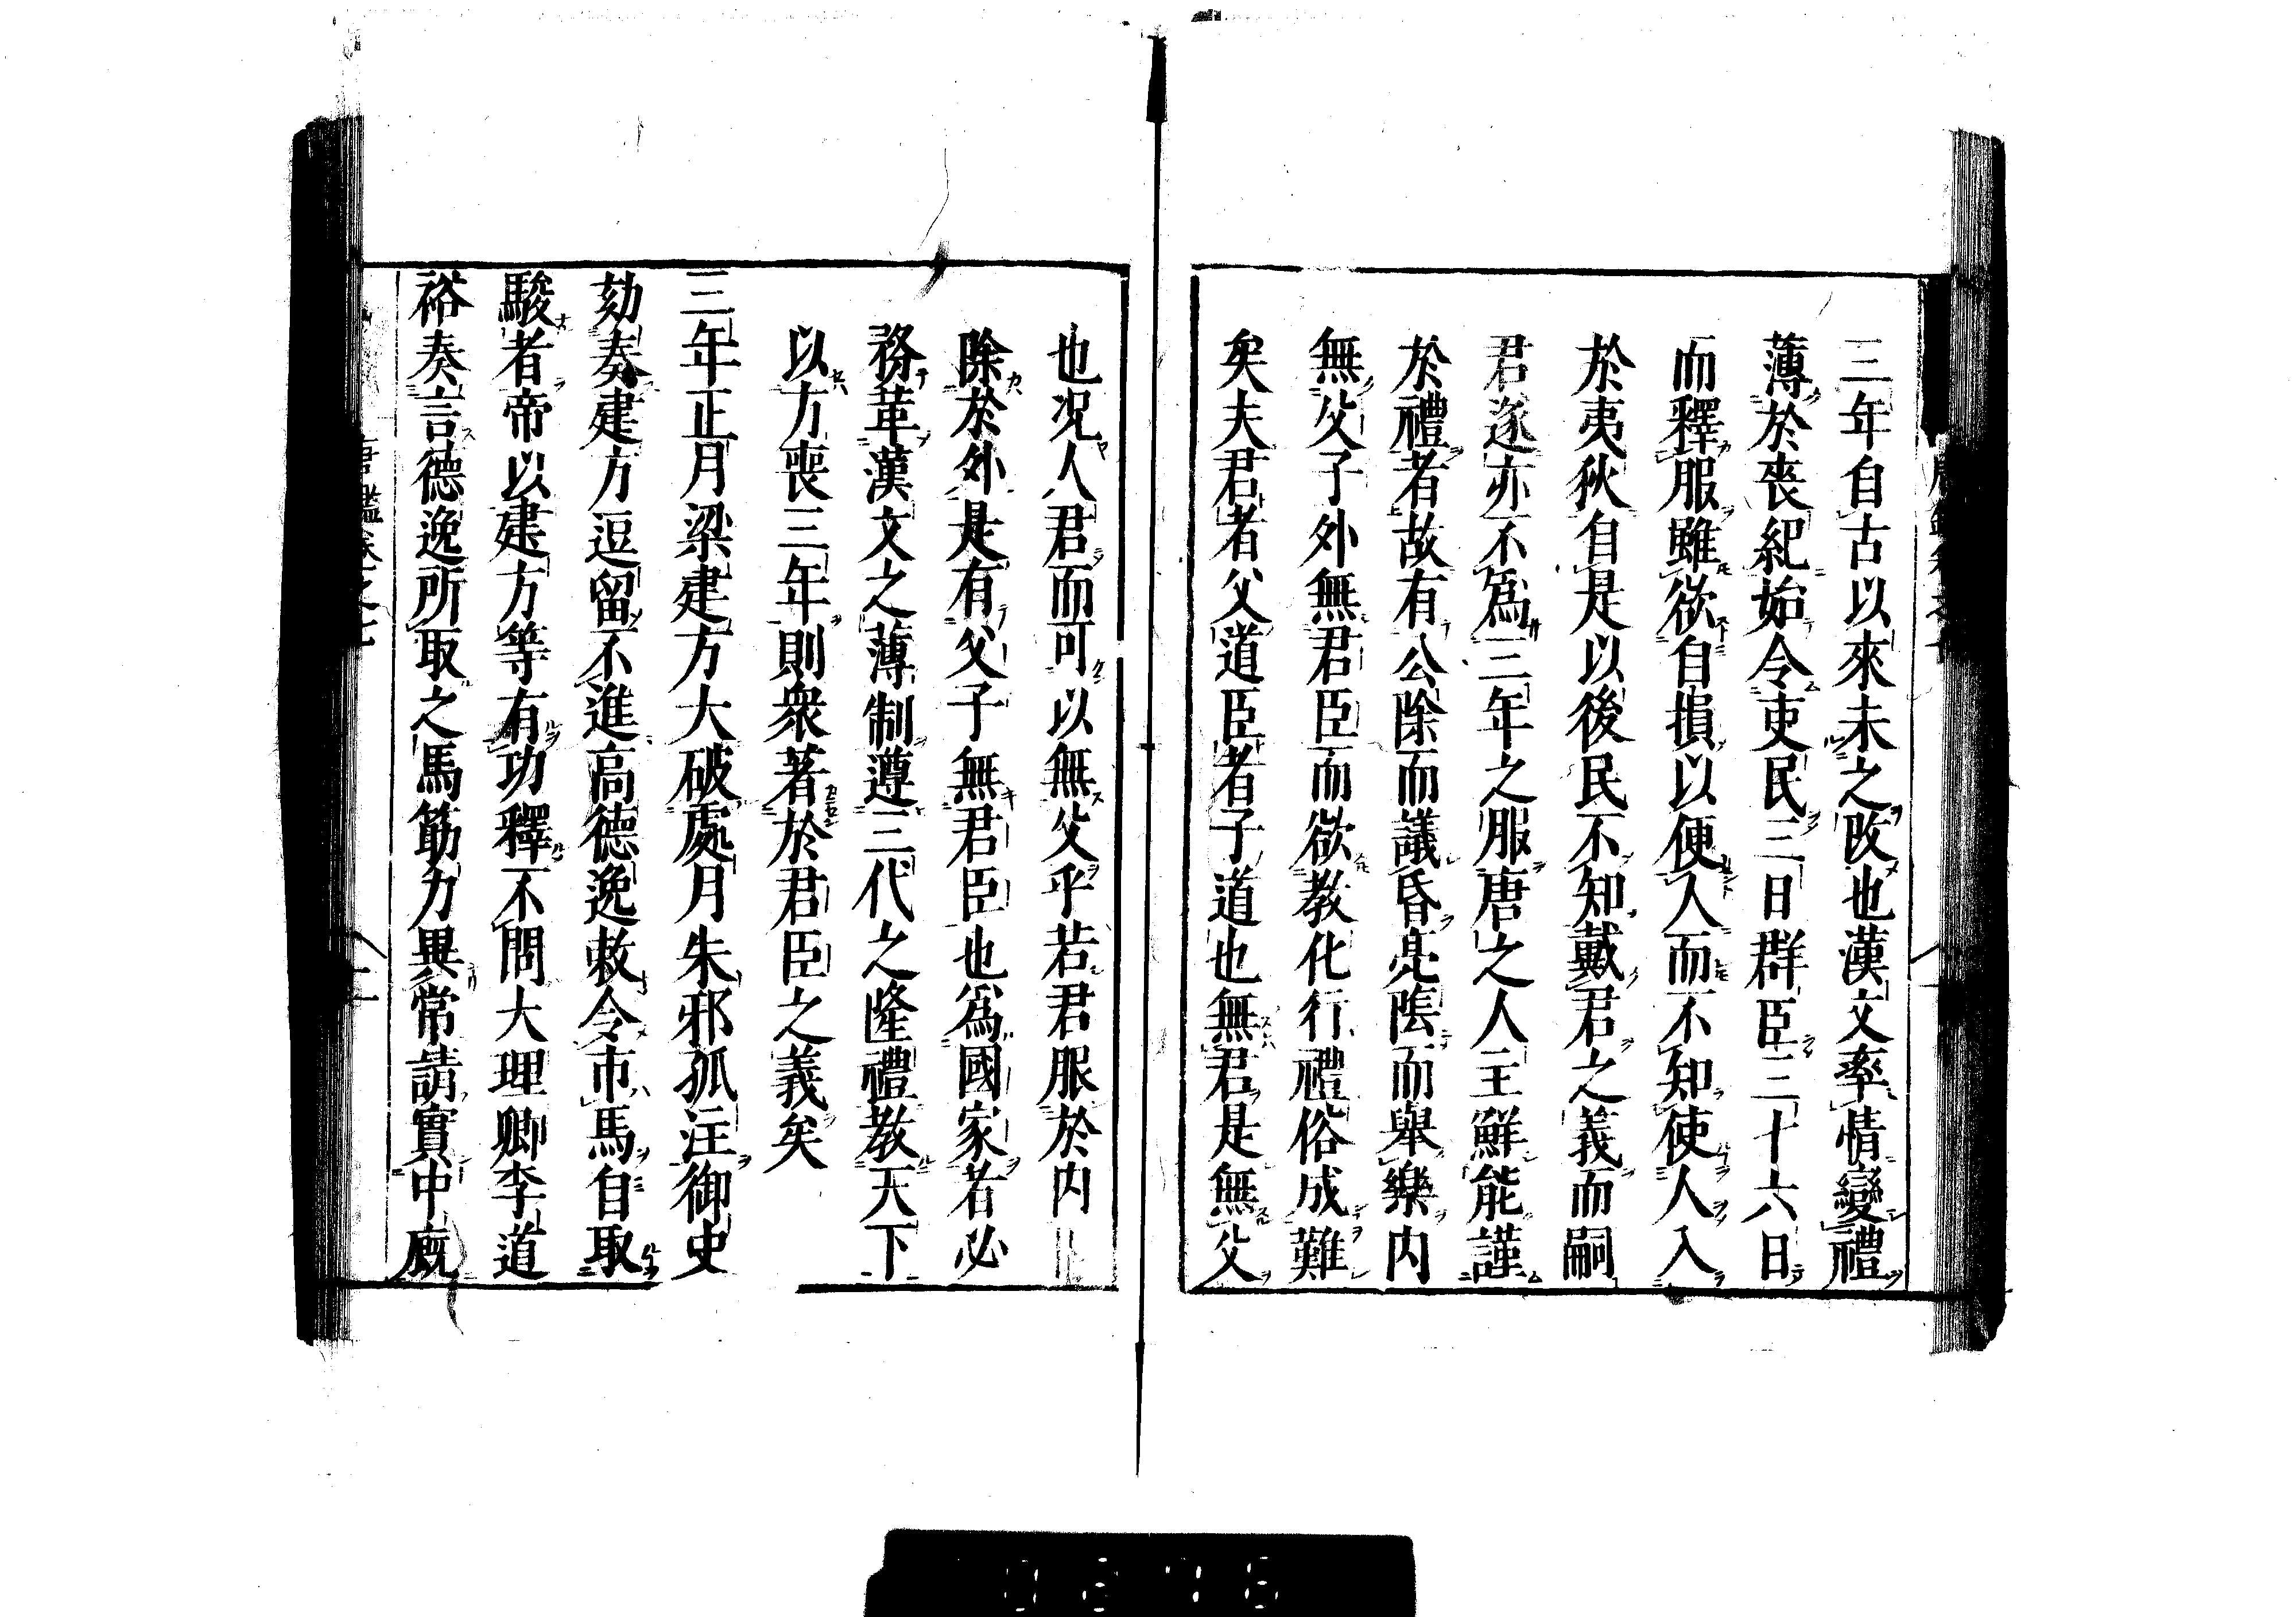 三年自古以來未之改也漢文率情變禮
薄於喪紀始令吏民三日群臣三十六日
而釋服雖欲自損以便人而不知使人入
於夷狄自是以後民不知戴君之義而嗣
君遂亦不爲三年之服唐之人主鮮能謹
於禮者故有公除而議昏亮陰而舉樂内
無父子外無君臣而欲教化行禮俗成難
矣夫君者父道臣者子道也無君是無父
也况人君而可以無父乎若君服於内
除於外是有父子無君臣也爲國家者必
務革漢文之薄制遵三代之隆禮教天下
以方喪三年則衆著於君臣之義矣
三年正月梁建方大破處月朱邪孤注御史
劾奏建方逗留不進高德逸敕令市馬自取
駿者帝以建方等有功釋不問大理卿李道
裕奏言德逸所取之馬筋力異常請實中廐
唐鑑卷之七